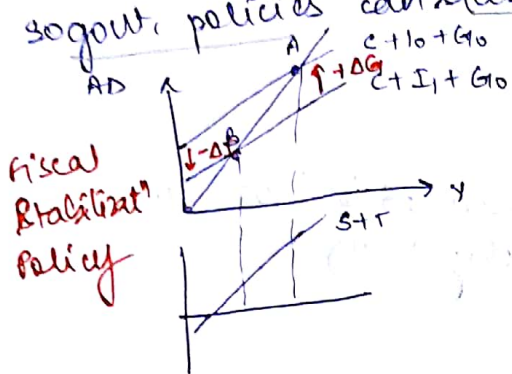 sogout. policies
A
C + I0 + G0
AD
↑ +ΔG
C + I1 + G0
↓ -ΔI
B
Fiscal
Stabilizatⁿ
Policy
Y
S+T